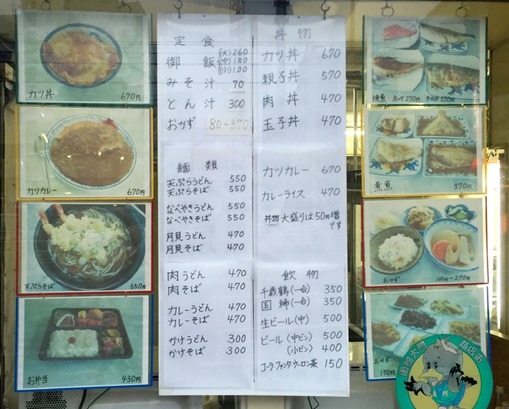 カツ丼 670円
カツカレー 670円
天ぷらそば 550円
お弁当 430円
定食
御飯 (大)260
(中)180
(小)100
みそ汁 70
とん汁 300
おかず 80〜370
麺類
天ぷらうどん 550
天ぷらそば 550
なべやきうどん 550
なべやきそば 550
月見うどん 470
月見そば 470
肉うどん 470
肉そば 470
カレーうどん 470
カレーそば 470
かけうどん 300
かけそば 300
丼物
カツ丼 670
親子丼 570
肉丼 470
玉子丼 470
カツカレー 670
カレーライス 470
丼物大盛りは50円増
です
飲物
千歳鶴(一合) 350
国稀(一合) 350
生ビール(中) 500
ビール(中ビン) 500
(小ビン) 400
コーラ・ファンタ・ウーロン茶 150
焼魚
煮魚 370円
おかず 100円〜270円
おかず 170円